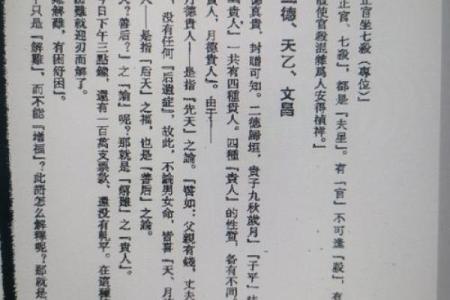 正官坐七殺（專位）」
正官，七殺，都是「夫星」。有「官」不可逢「殺」，有
殺使官殺混雜爲人安得楨祥。」
二德、天乙、文昌
德真貴，封贈可知。二德歸垣，貴子九秋歲月」「子平」
「貴人」一共有四種貴人。四種「貴人」的性質，各有不同
月德貴人」。由于——
人——是指「先天」之論。「譬如：父親有錢，丈夫
没有任何「后遺症」，故此，不論男女命，皆喜「天、月
人——是指「后天」之福，也是「善后」之論。
「善后」之「」呢？那就是「解難」之「貴人」。
日下午三點鐘，還有一百萬支票款，還没有軋平。在這種
難就迎刃而解了。
解難，有困舒困」。
只是「解難」，而不能「增福」？此語怎么解釋呢？那就是